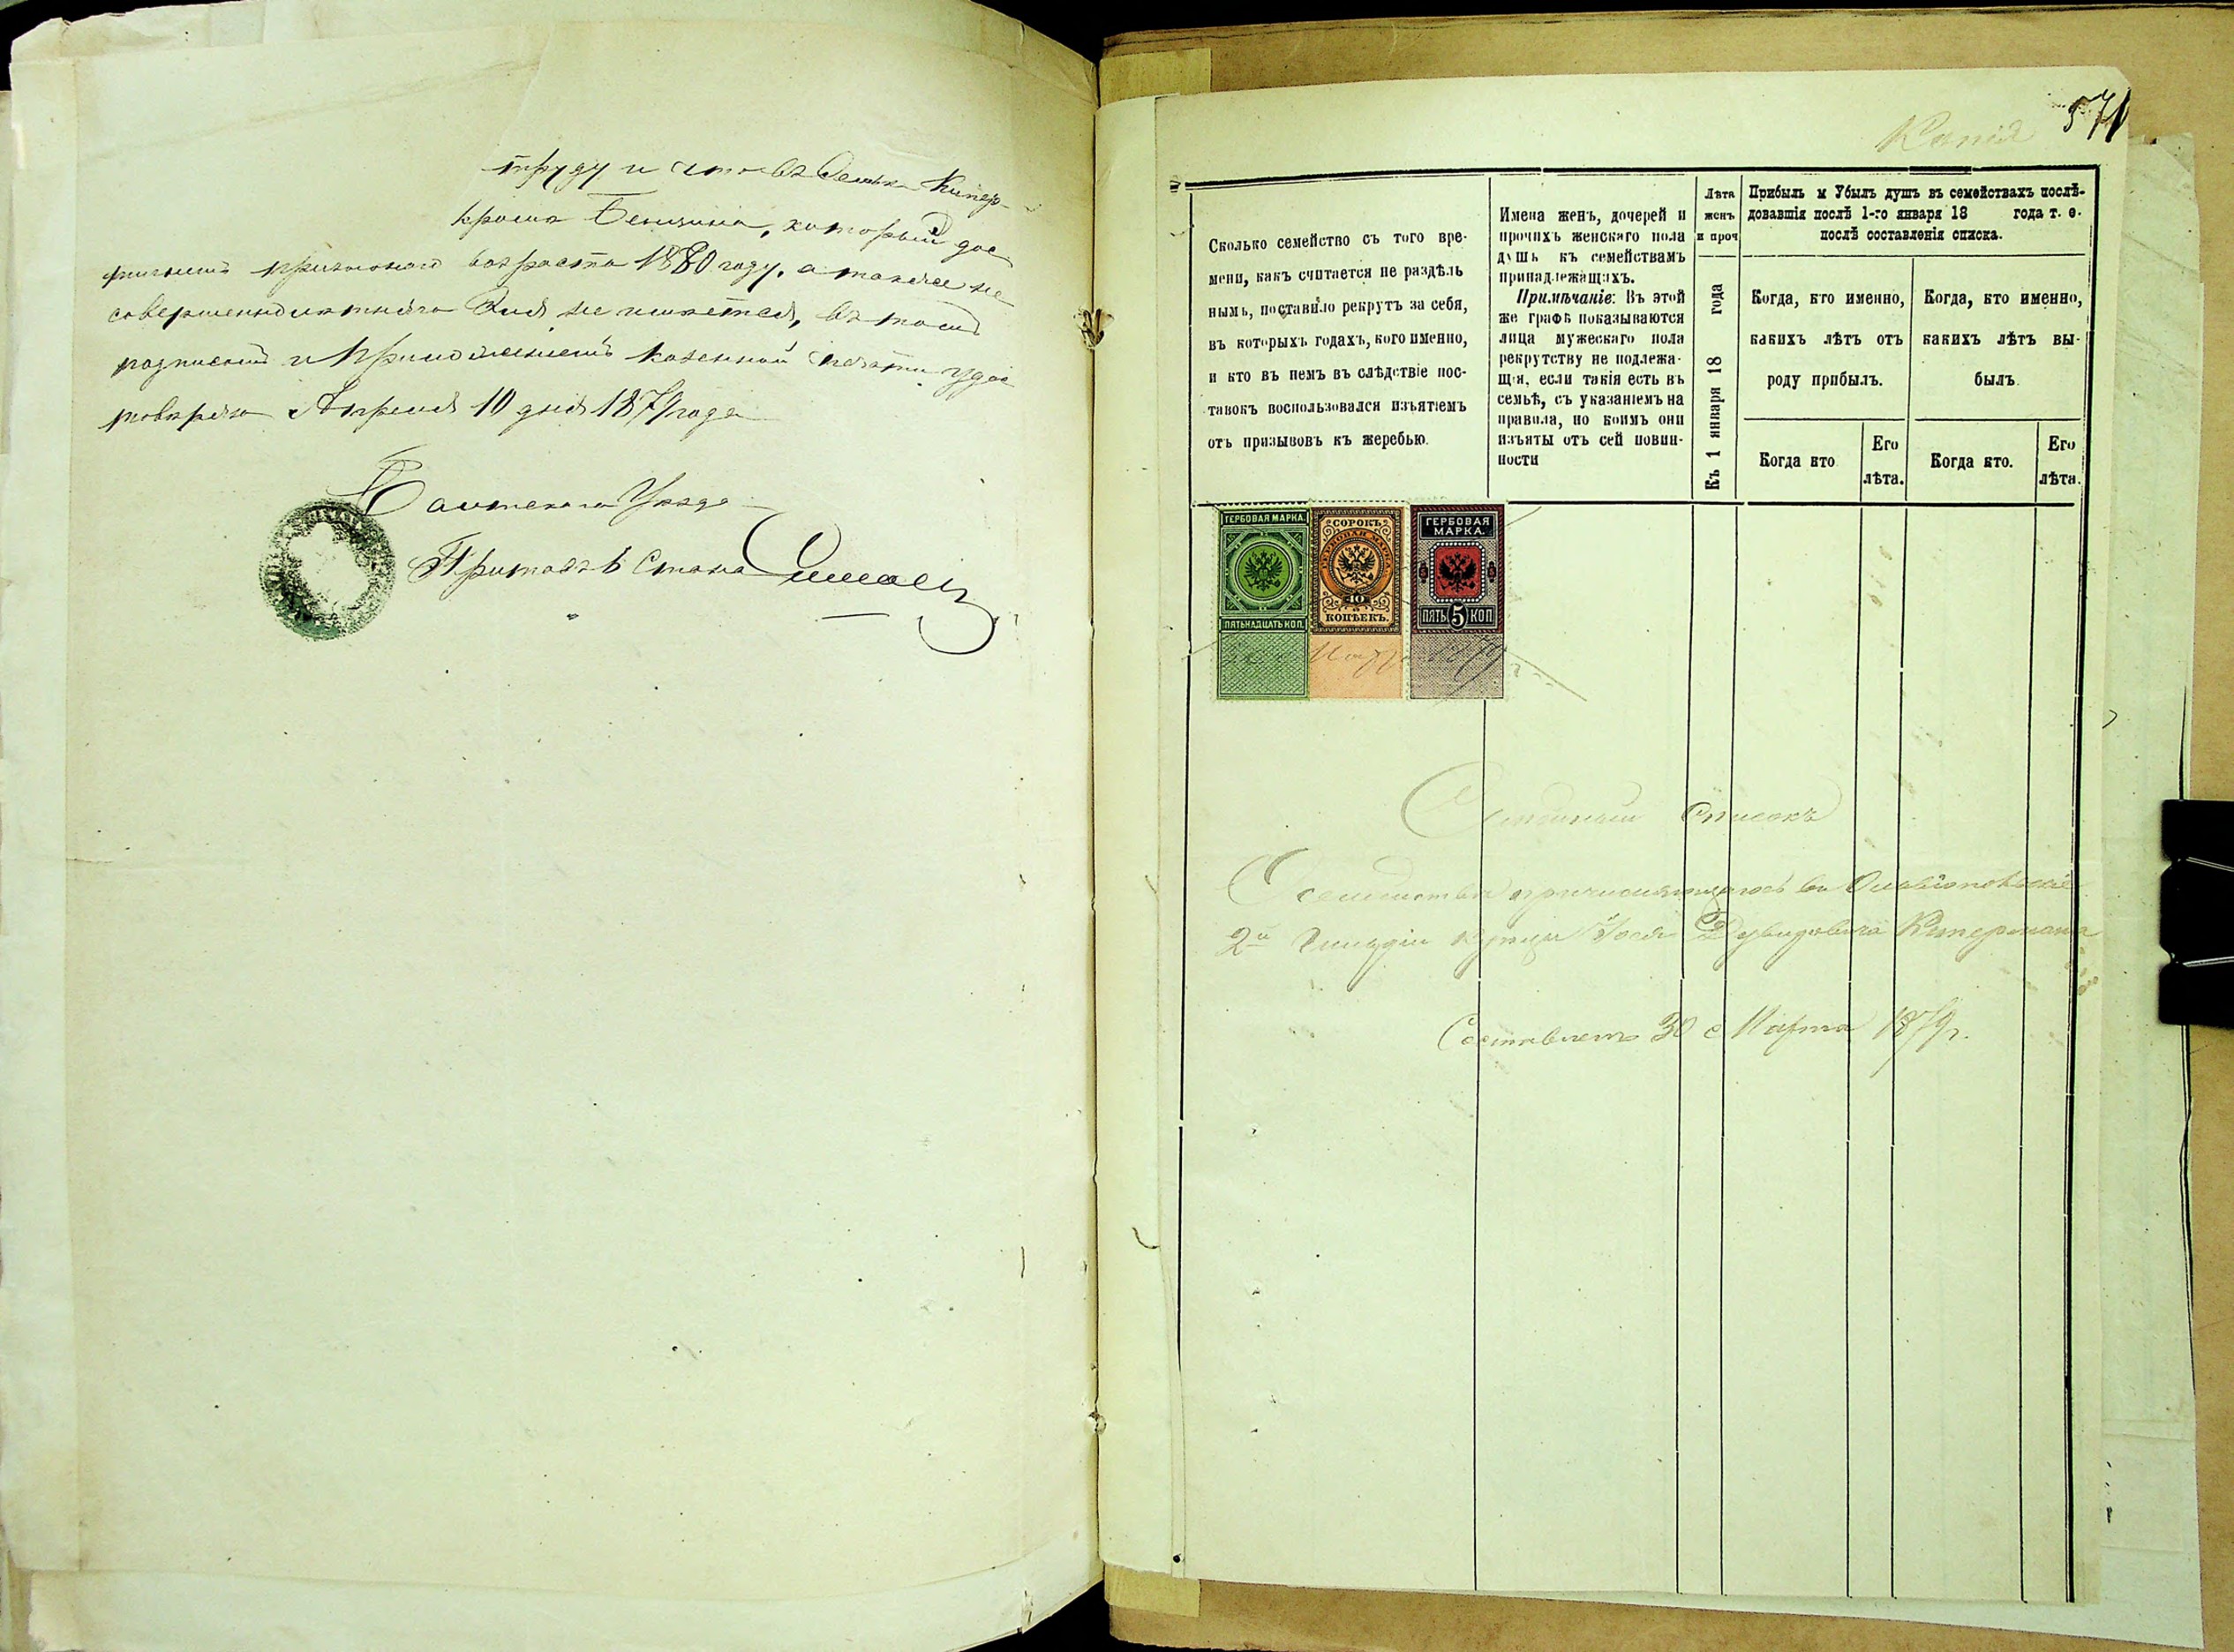 труду и что въ семьѣ Кипер-
кромѣ Бенціона, который дос
тигнетъ призывного возраста 1880 году, а также не
совершеннолѣтняго Зися не имѣется, въ томъ
подписомъ и приложеніемъ казенной печати удос
товѣряю Апрѣля 10 дня 1879 года
Балтскаго Уѣзда
Приставъ Стана
Копія
571
Сколько семейство съ того вре-
мени, какъ считается не раздѣль
нымъ, поставило рекрутъ за себя,
въ которыхъ годахъ, кого именно,
и кто въ немъ въ слѣдствіе пос-
тавокъ воспользовался изъятіемъ
отъ призывовъ къ жеребью.
Имена женъ, дочерей и
прочихъ женскаго пола
душъ къ семействамъ
принадлежащихъ.
Примѣчаніе: Въ этой
же графѣ показываются
лица мужескаго пола
рекрутству не подлежа-
щія, если такія есть въ
семьѣ, съ указаніемъ на
правила, по коимъ они
изъяты отъ сей повин-
ности
Лѣта
женъ
и проч
Къ 1 января 18 года
Прибыль и Убыль душъ въ семействахъ послѣ-
довавшія послѣ 1-го января 18 года т. е.
послѣ составленія списка.
Когда, кто именно,
какихъ лѣтъ отъ
роду прибылъ.
Когда кто
Его
лѣта.
Когда, кто именно,
какихъ лѣтъ вы-
былъ.
Когда кто.
Его
лѣта.
ГЕРБОВАЯ МАРКА.
ПЯТЬНАДЦАТЬ КОП.
СОРОКЪ
ГЕРБОВАЯ МАРКА.
40
КОПѢЕКЪ.
ГЕРБОВАЯ
МАРКА.
ПЯТЬ 5 КОП
Семейный списокъ
О семействѣ причисляющагося въ Ольвіопольскіе
2й Гильдіи купцы Іося Дувидовича Кипермана
Составленъ 30 Марта 1879 г.